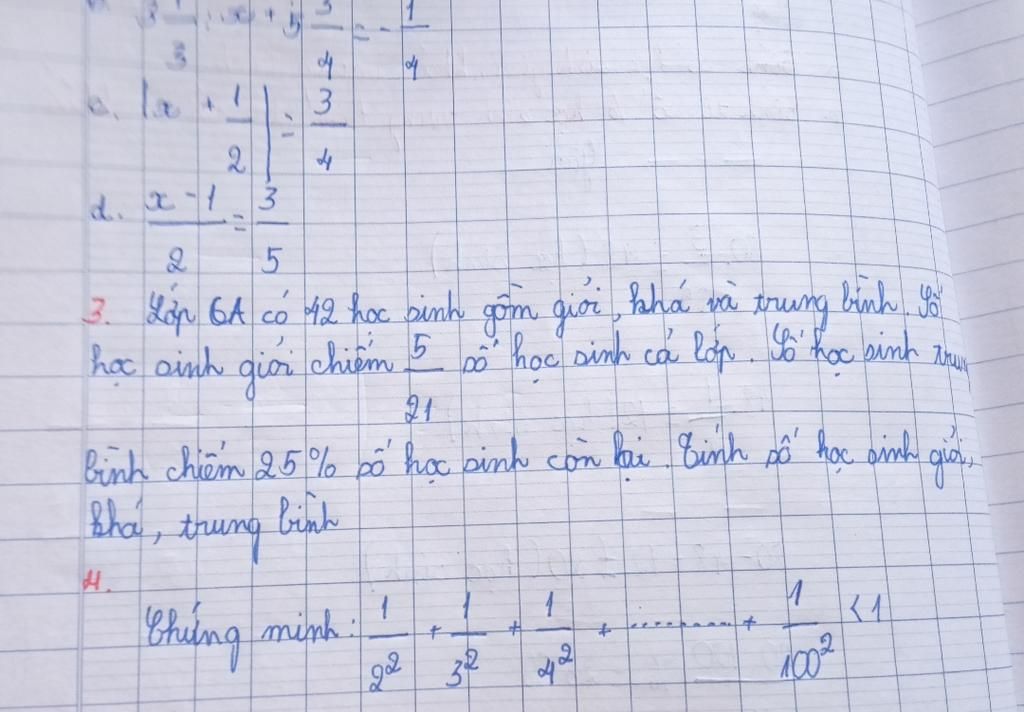 x + 5 3/4 = - 1/4
c. |x + 1/2| = 3/4
d. x - 1/2 = 3/5
3. Lớp 6A có 42 học sinh gồm giỏi, khá và trung bình. Số
học sinh giỏi chiếm 5/21 số học sinh cả lớp. Số học sinh trung
bình chiếm 25% số học sinh còn lại. Tính số học sinh giỏi,
khá, trung bình
4.
Chứng minh: 1/2² + 1/3² + 1/4² + ........... + 1/100² < 1